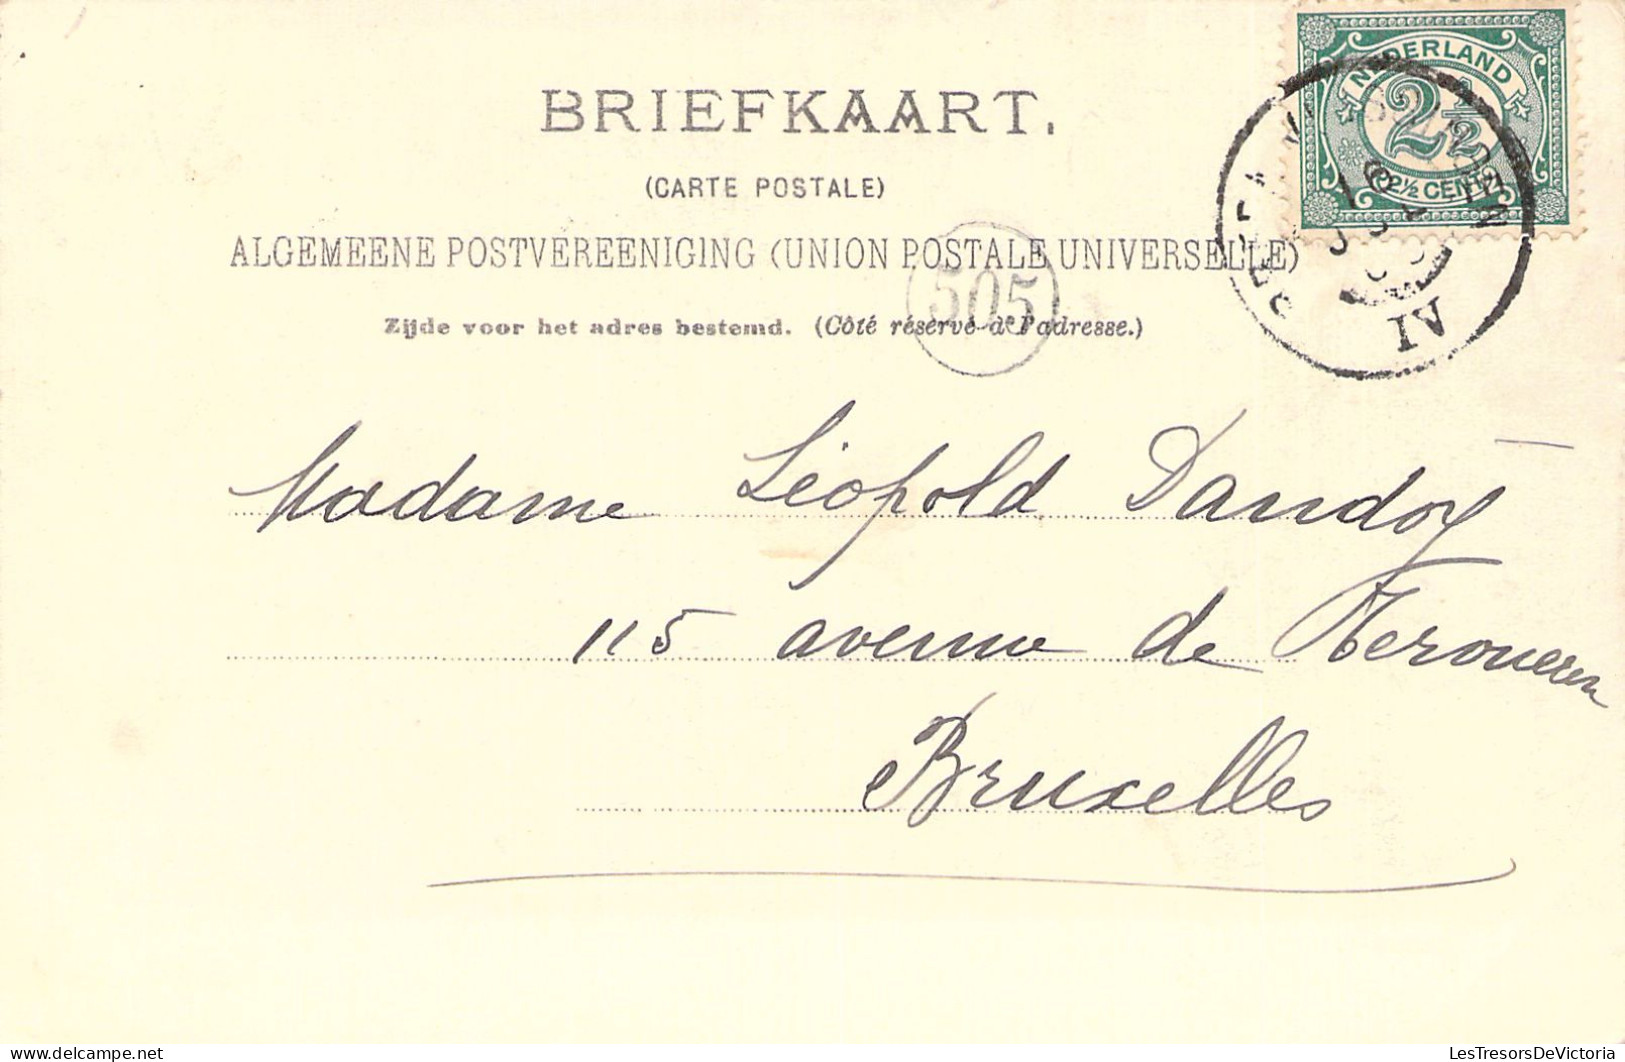 BRIEFKAART.
(CARTE POSTALE)
ALGEMEENE POSTVEREENIGING (UNION POSTALE UNIVERSELLE)
Zijde voor het adres bestemd. (Côté réservé de l'adresse.)
NEDERLAND
2½
2½ CENT
IV
505
Madame Léopold Dandoy
115 avenue de
Bruxelles
© delcampe.net
LesTresorsDeVictoria